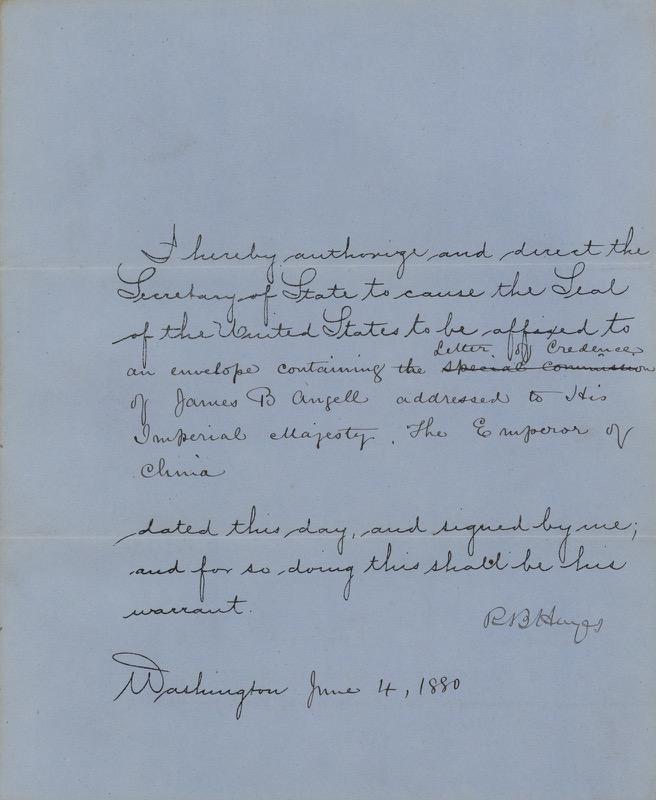 I hereby authorize and direct the
Secretary of State to cause the Seal
of the United States to be affixed to
Letter of Credence
an envelope containing the special Commission
of James B Angell addressed to His
Imperial Majesty, The Emperor of
China
dated this day, and signed by me;
and for so doing this shall be his
warrant.
R B Hayes
Washington June 4, 1880